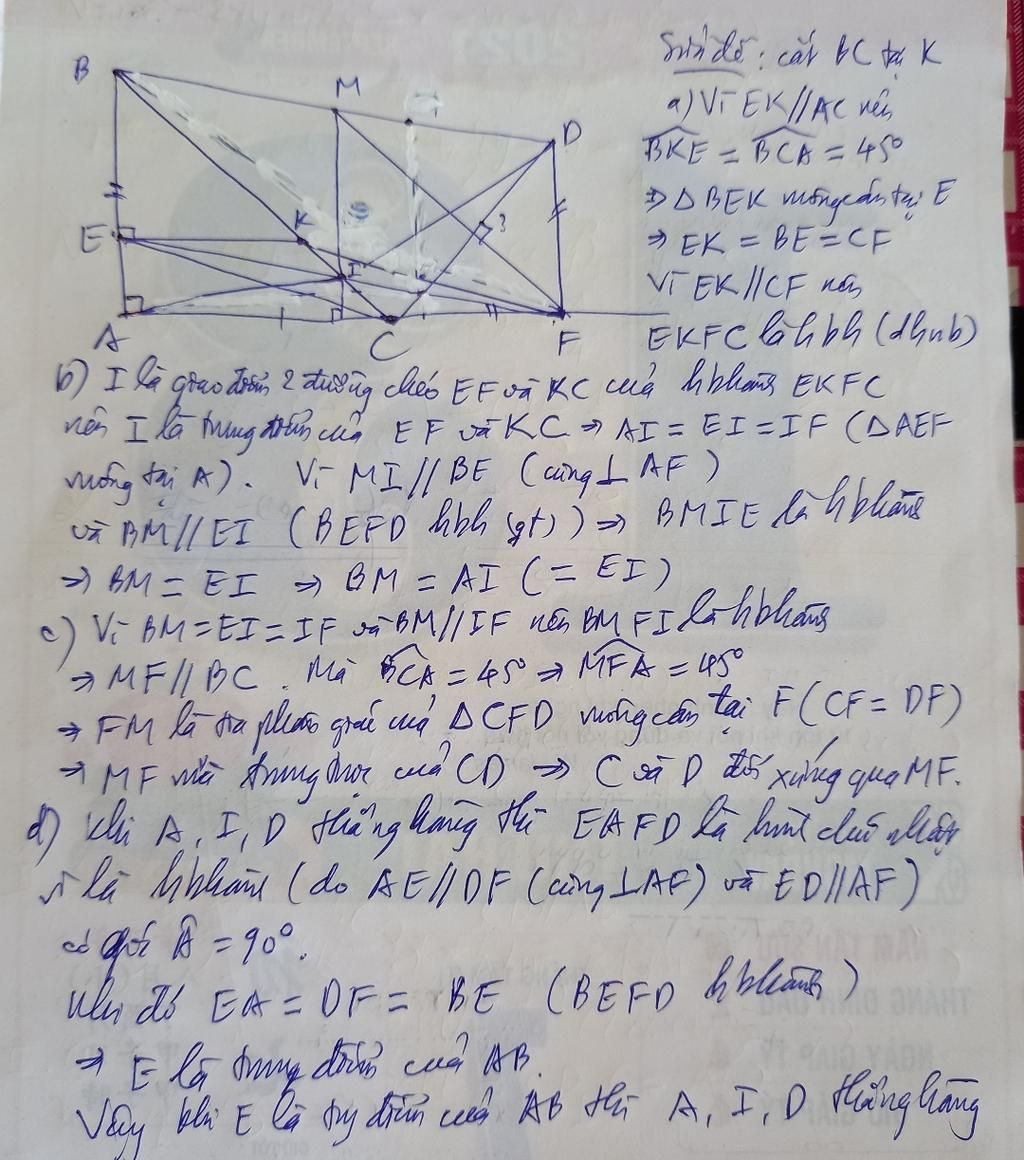 B
M
D
E
K
I
A
C
F
Sửa đề: cắt BC tại K
a) Vì EK//AC nên
BKE = BCA = 45°
⇒ Δ BEK vuông cân tại E
⇒ EK = BE = CF
Vì EK//CF nên
EKFC là hbh (dhnb)
b) I là giao điểm 2 đường chéo EF và KC của hbhành EKFC
nên I là trung điểm của EF và KC ⇒ AI = EI = IF (ΔAEF
vuông tại A). Vì MI // BE (cùng ⊥ AF)
và BM // EI (BEFD hbh (gt)) ⇒ BMIE là hbhành
⇒ BM = EI ⇒ BM = AI (= EI)
c) Vì BM = EI = IF và BM // IF nên BMFI là hbhành
⇒ MF // BC. Mà BCA = 45° ⇒ MFA = 45°
⇒ FM là tia phân giác của ΔCFD vuông cân tại F (CF = DF)
⇒ MF là trung trực của CD ⇒ C và D đối xứng qua MF.
d) Khi A, I, D thẳng hàng thì EAFD là hình chữ nhật
vì là hbhành (do AE // DF (cùng ⊥ AF) và ED // AF)
có góc Â = 90°.
Khi đó EA = DF = BE (BEFD hbhành)
⇒ E là trung điểm của AB.
Vậy khi E là tr điểm của AB thì A, I, D thẳng hàng